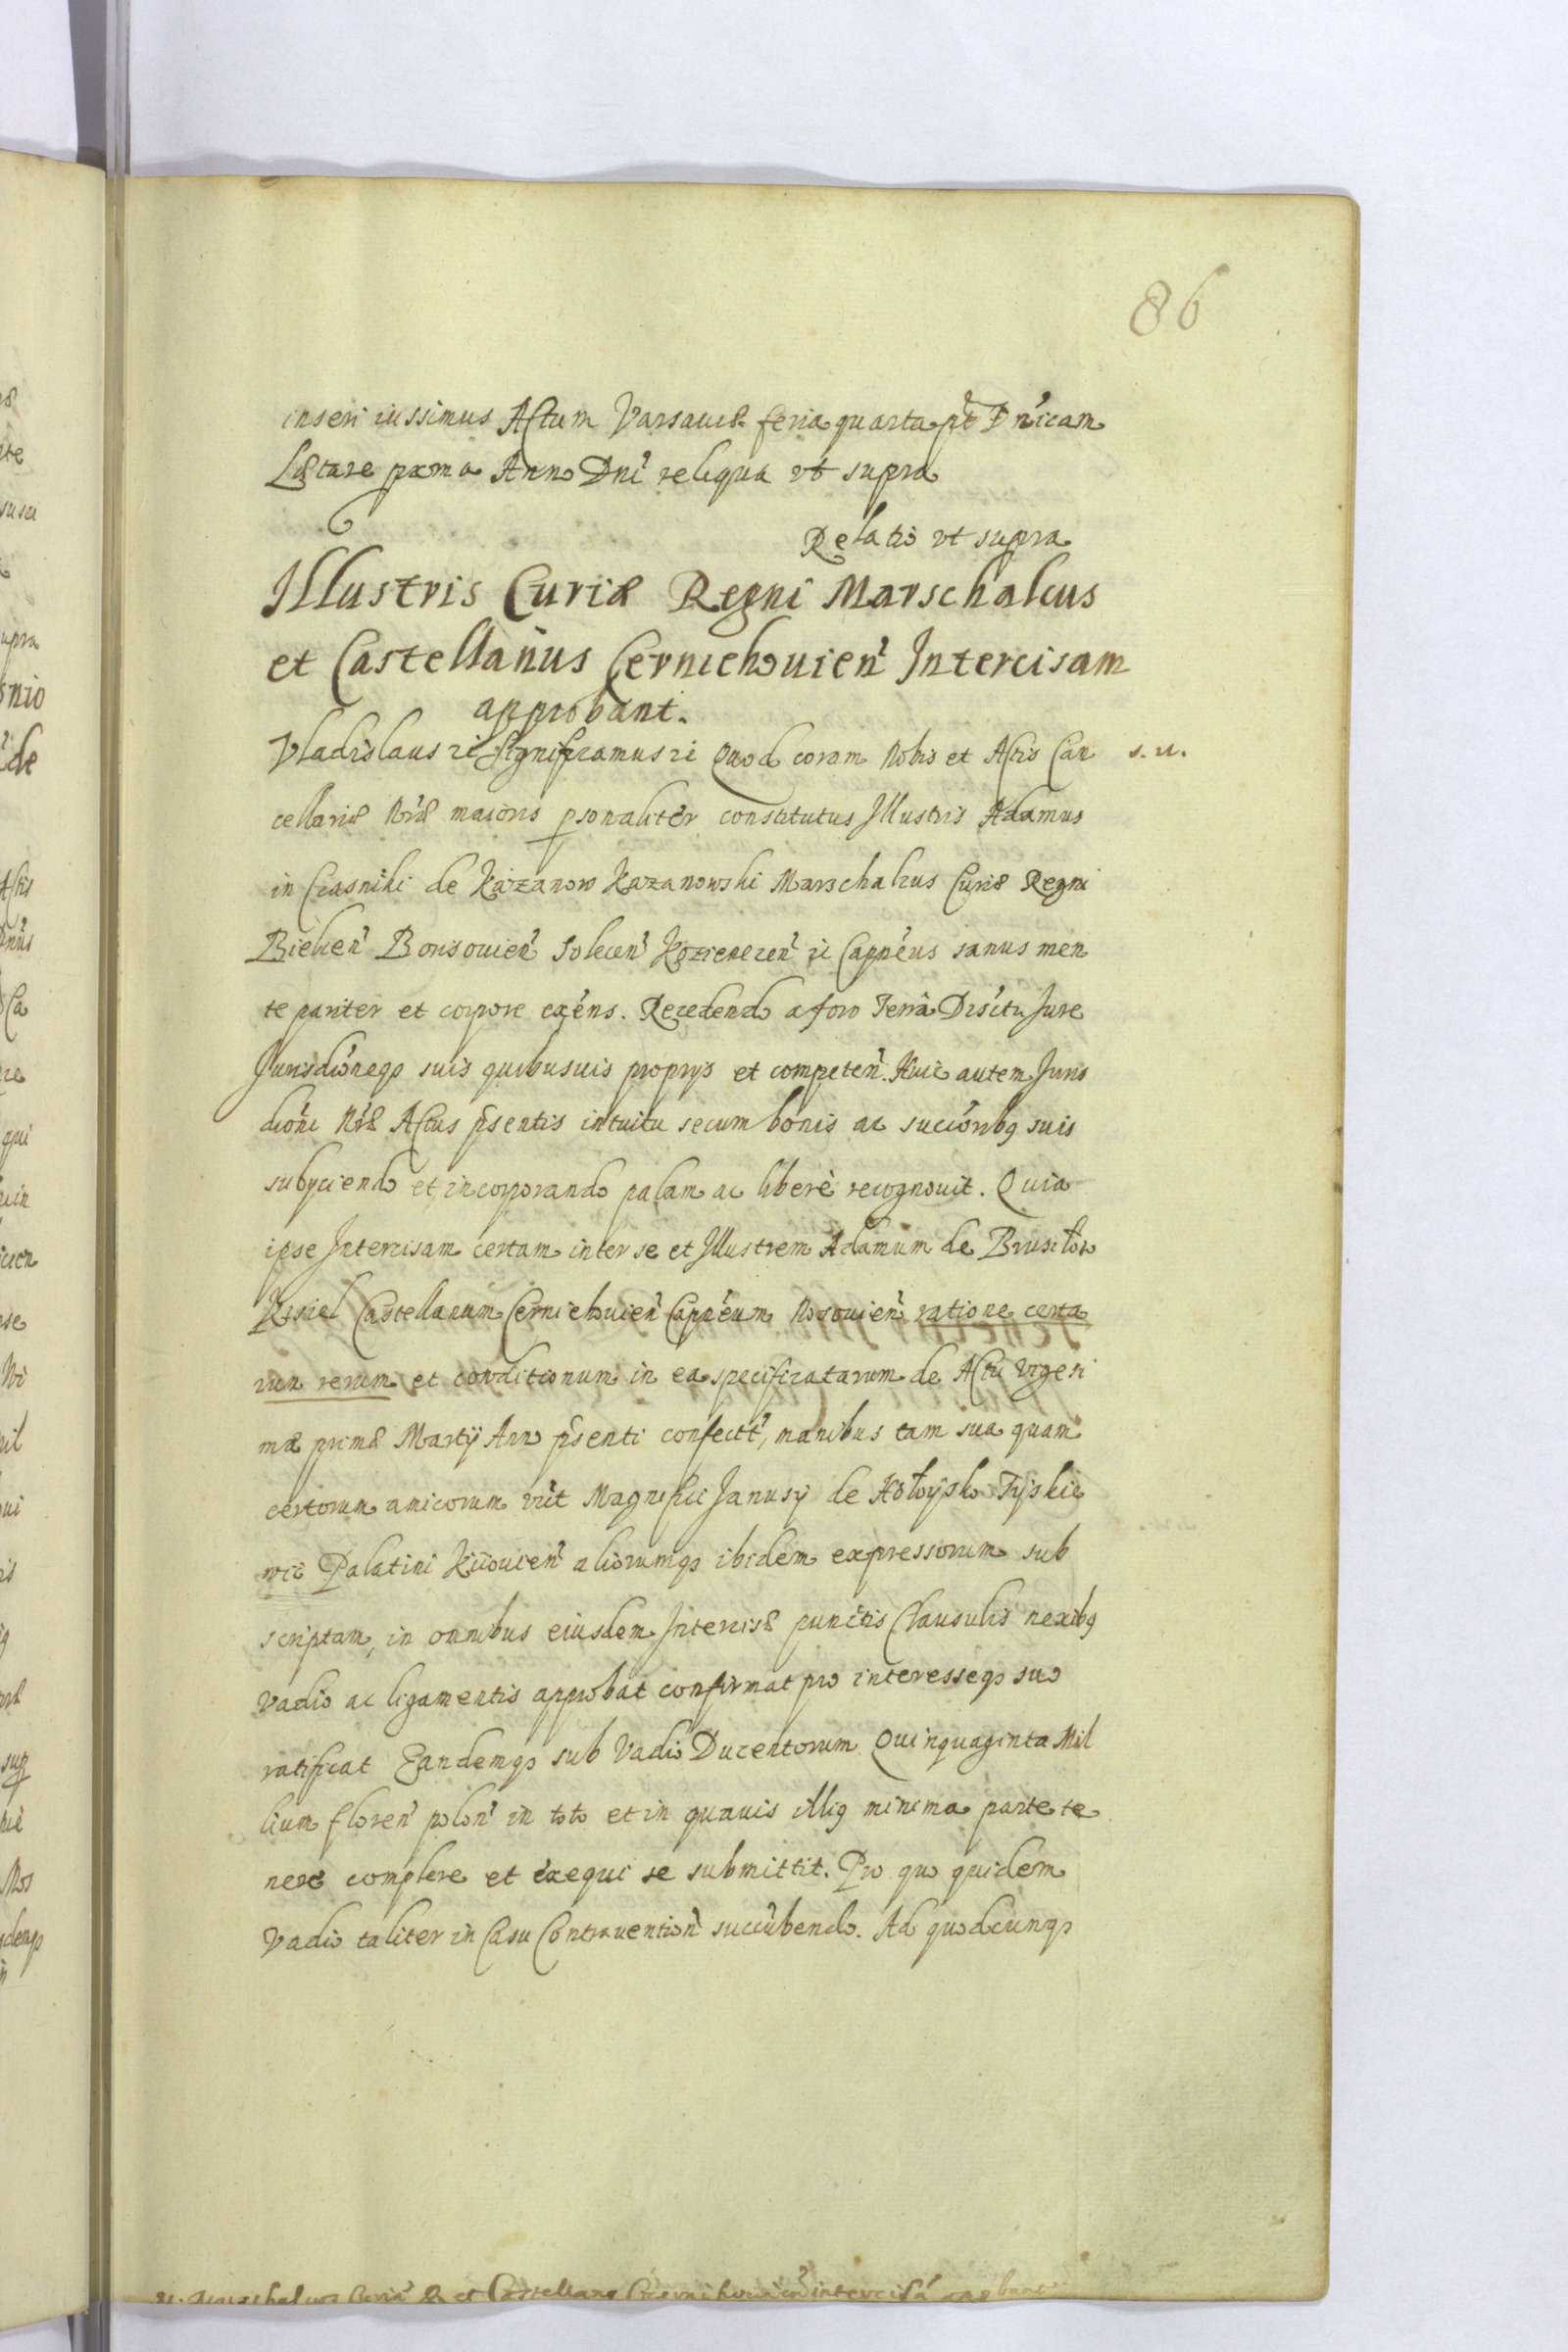 86
inseri iussimus Actum Varsaviæ feria quarta pt Dnicam
Lætare pxma Anno Dni reliqua vt supra
Relatio vt supra
Illustris Curiæ Regni Marschalcus
et Castellanus Cernichouien Intercisam
approbant.
Vladislaus ic Significamus ic Quod coram Nobis et Actis Can s. u.
cellariæ Nræ maioris psonaliter constitutus Illustris Adamus
in Crasniki de Kazanow Kazanowski Marschalcus Curiæ Regni
Bielien Borisouien Solecen Kozienecen ic Capneus sanus men
te pariter et corpore exens. Recedendo a foro Terra Disctu Jure
Jurisdioneq suis quibusuis proprys et competen. Huic autem Juris
dioni Nræ Actus psentis intuitu secum bonis ac succionbq suis
subyciendo et incorporando palam ac liberè recognouit. Quia
ipse Intercisam certam inter se et Illustrem Adamum de Brusilow
Kisiel Castellanum Cernichouien Capneum Nosouien ratione certa
rum rerum et conditionum in ea specificatarum de Actu vigesi
ma prima Martij Anno psenti confectt, manibus tam sua quam
certorum amicorum vnt Magnifici Janusy de Hołoysko Tyskie
wic Palatini Kiiouien aliorumq ibidem expressorum sub
scriptam, in omnibus eiusdem Intercisæ punctis Clausulis nexibq
vadio ac ligamentis approbat confirmat pro interesseq suo
ratificat Eandemq sub Vadio Ducentorum Quinquaginta Mil
lium floren polon in toto et in quauis illiq minima parte te
nere complere et exequi se submittit. Pro quo quidem
Vadio taliter in Casu Contrauention succubendo. Ad quodcunq
Marschalcus Curiæ R et Castellanq Czernihouien intercisa